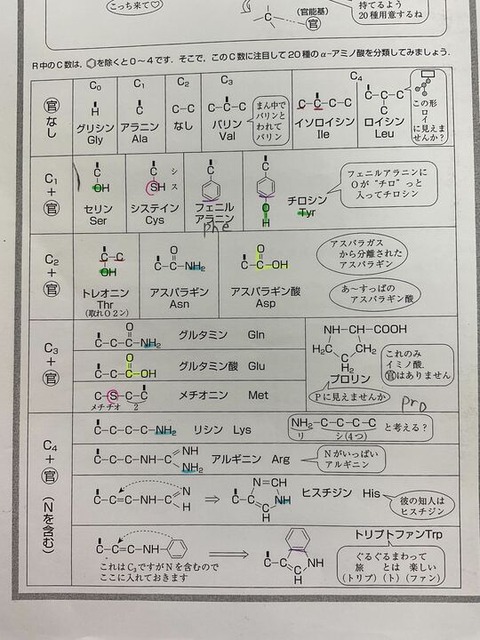 こっち来て♡
持てるよう
20種用意するね
C
(官能基)
官
R中のC数は、⌬を除くと0〜4です。そこで、このC数に注目して20種のα-アミノ酸を分類してみましょう。
C₀ C₁ C₂ C₃ C₄
官なし
H
グリシン
Gly
C
アラニン
Ala
C-C
なし
C-C-C
バリン
Val
まん中で
バリンと
われて
バリン
C-C-C-C
イソロイシン
Ile
C-C-C
C
ロイシン
Leu
この形
ロイ
に見えま
せんか?
C₁+官
C
OH
セリン
Ser
C
SH
シス
システイン
Cys
C
フェニル
アラニン
Phe
C
OH
チロシン
Tyr
フェニルアラニンに
Oが“チロ”っと
入ってチロシン
C₂+官
C-C
OH
トレオニン
Thr
(取れO2ン)
O
C-C-NH₂
アスパラギン
Asn
O
C-C-OH
アスパラギン酸
Asp
アスパラガス
から分離された
アスパラギン
あーすっぱの
アスパラギン酸
C₃+官
O
C-C-C-NH₂ グルタミン Gln
O
C-C-C-OH グルタミン酸 Glu
C-S-C-C メチオニン Met
メチチオ 2
NH-CH-COOH
H₂C CH₂
C
H₂
プロリン
Pに見えませんか
これのみ
イミノ酸、
官はありません
Pro
C₄+官(Nを含む)
C-C-C-C-NH₂ リシン Lys
NH₂-C-C-C-C
リ シ(4つ)
と考える?
C-C-C-NH-C NH
NH₂
アルギニン Arg
Nがいっぱい
アルギニン
C-C=C-NH-C N
H
⇒
N=CH
C-C NH
C
H
ヒスチジン His
彼の知人は
ヒスチジン
C-C=C-NH-
これはC₃ですがNを含むので
ここに入れておきます
⇒
C-C NH
C
H
トリプトファンTrp
ぐるぐるまわって
旅 とは 楽しい
(トリプ)(ト)(ファン)